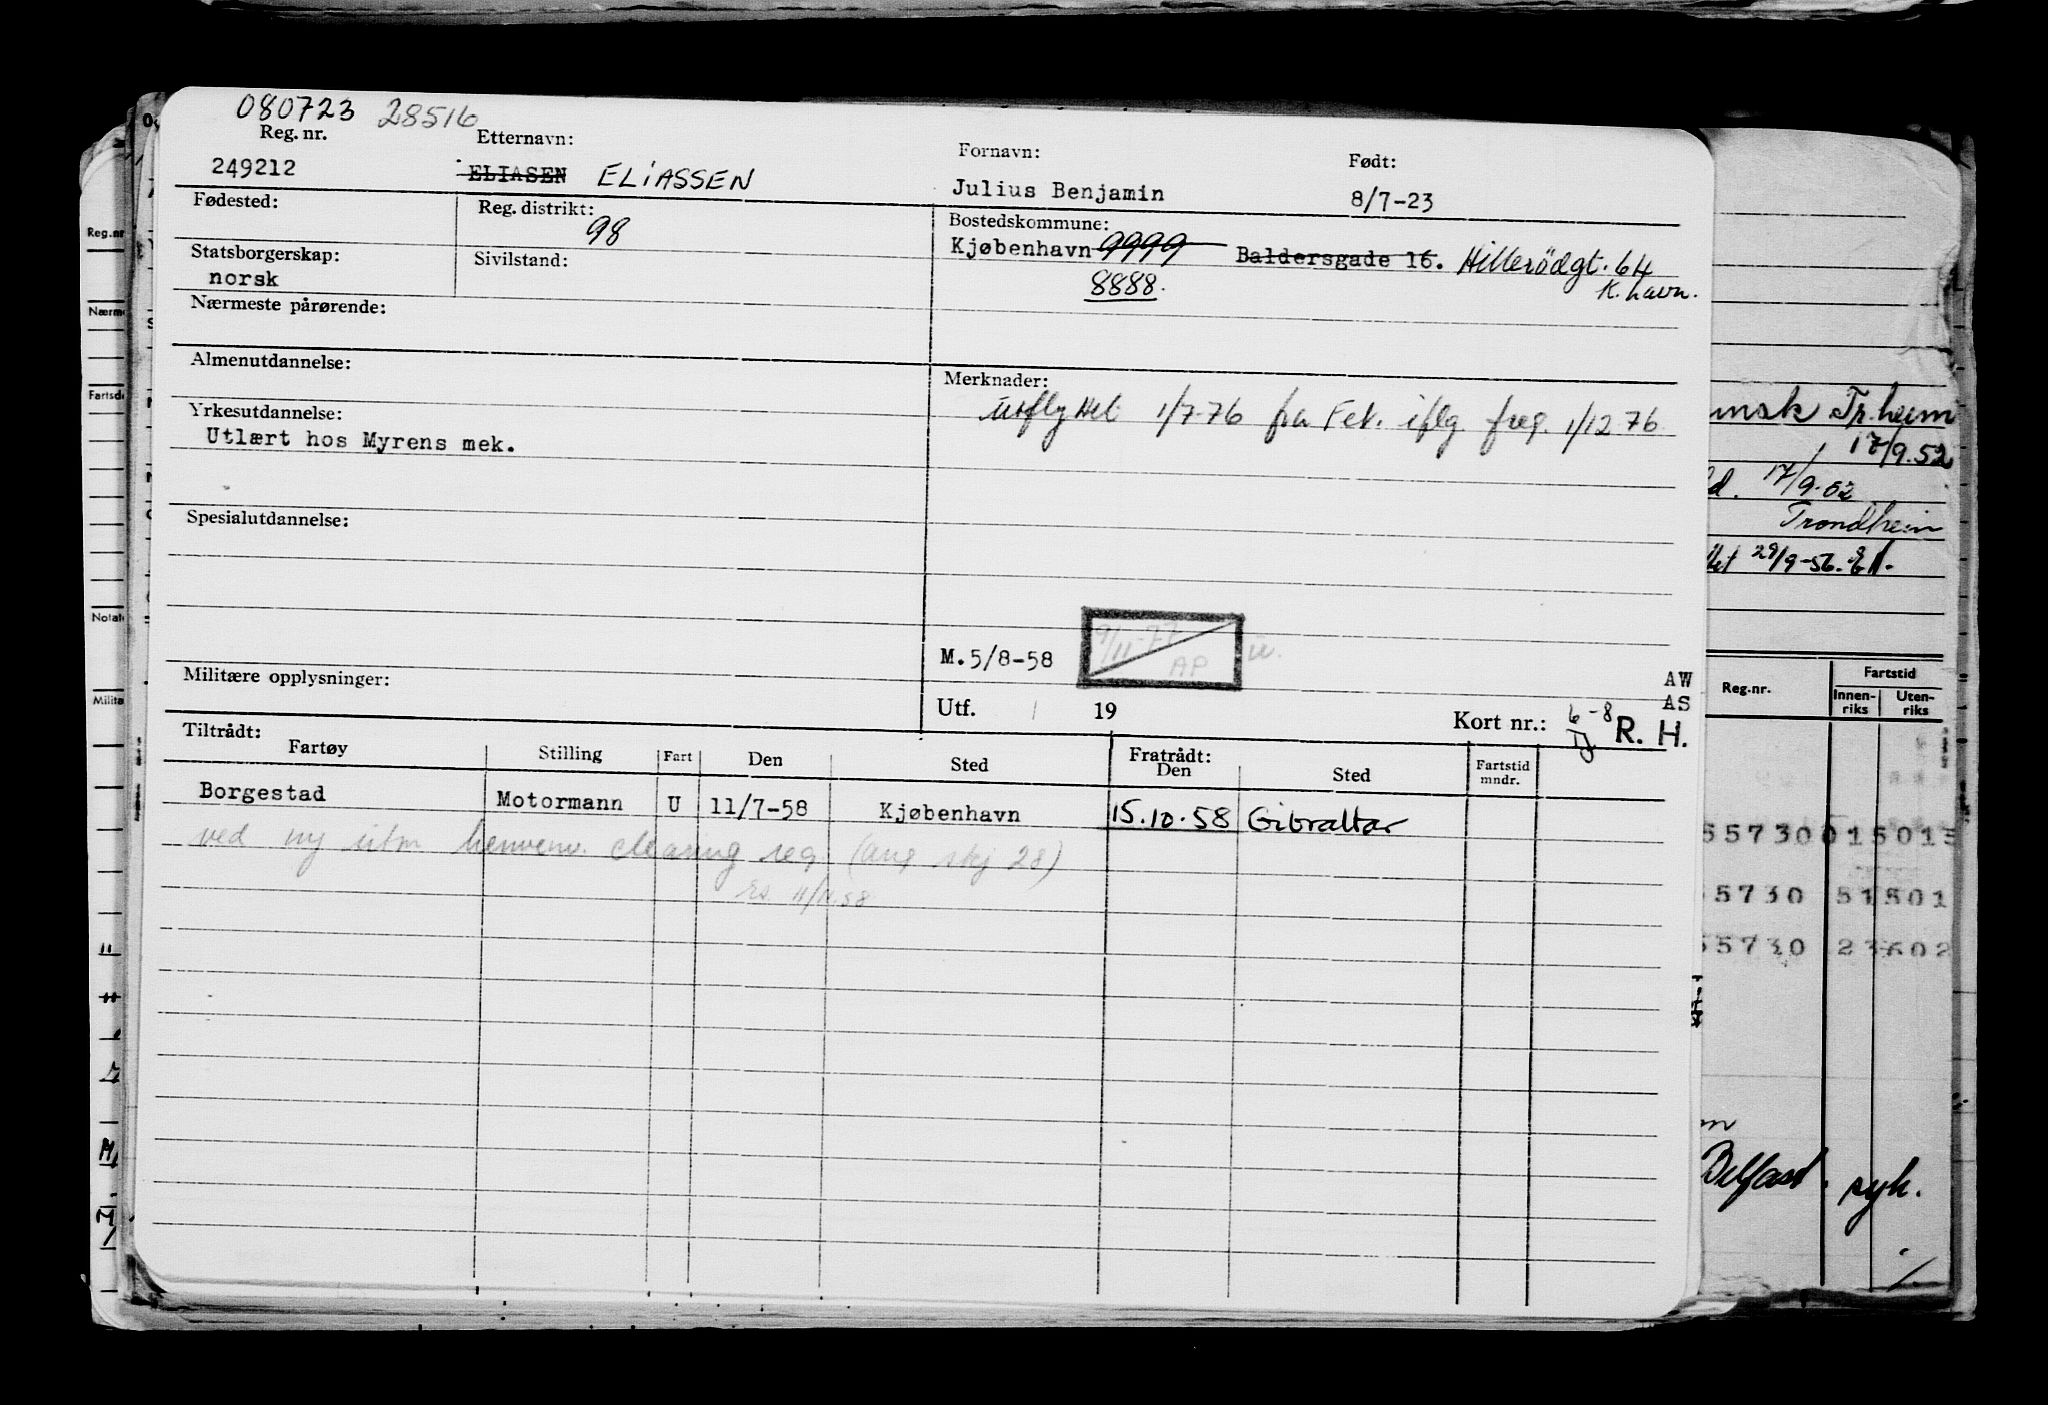 080723 28516
Reg. nr. Etternavn: Fornavn: Født:
249212 ELIASEN ELIASSEN Julius Benjamin 8/7-23
Fødested: Reg. distrikt: 98 Bostedskommune:
Kjøbenhavn 9999 Baldersgade 16. Hillerödgt. 64
8888. K.havn.
Statsborgerskap: Sivilstand:
norsk
Nærmeste pårørende:
Almenutdannelse: Merknader:
Utflyttet 1/7-76 fra Fet. iflg freg. 1/12 76
Yrkesutdannelse:
Utlært hos Myrens mek.
Spesialutdannelse:
M. 5/8-58 9/11-77 AP
Militære opplysninger: AW
Utf. 19 AS
Kort nr.: 6-8 R. H.
Tiltrådt: Fratrådt:
Fartøy Stilling Fart Den Sted Den Sted Fartstid mndr.
Borgestad Motormann U 11/7-58 Kjøbenhavn 15.10.58 Gibraltar
ved ny utm. clearing reg. (ang skj 28)
11/11 58
Reg.nr
Nærm
Fartsd
Notat
Milita
Tr.heim
17/9.52
17/9.52
Trondheim
29/9-56.
Reg.-nr. Fartstid
Innen-riks Uten-riks
55730 015015
5730 51501
55730 23602
Belfast. syk.